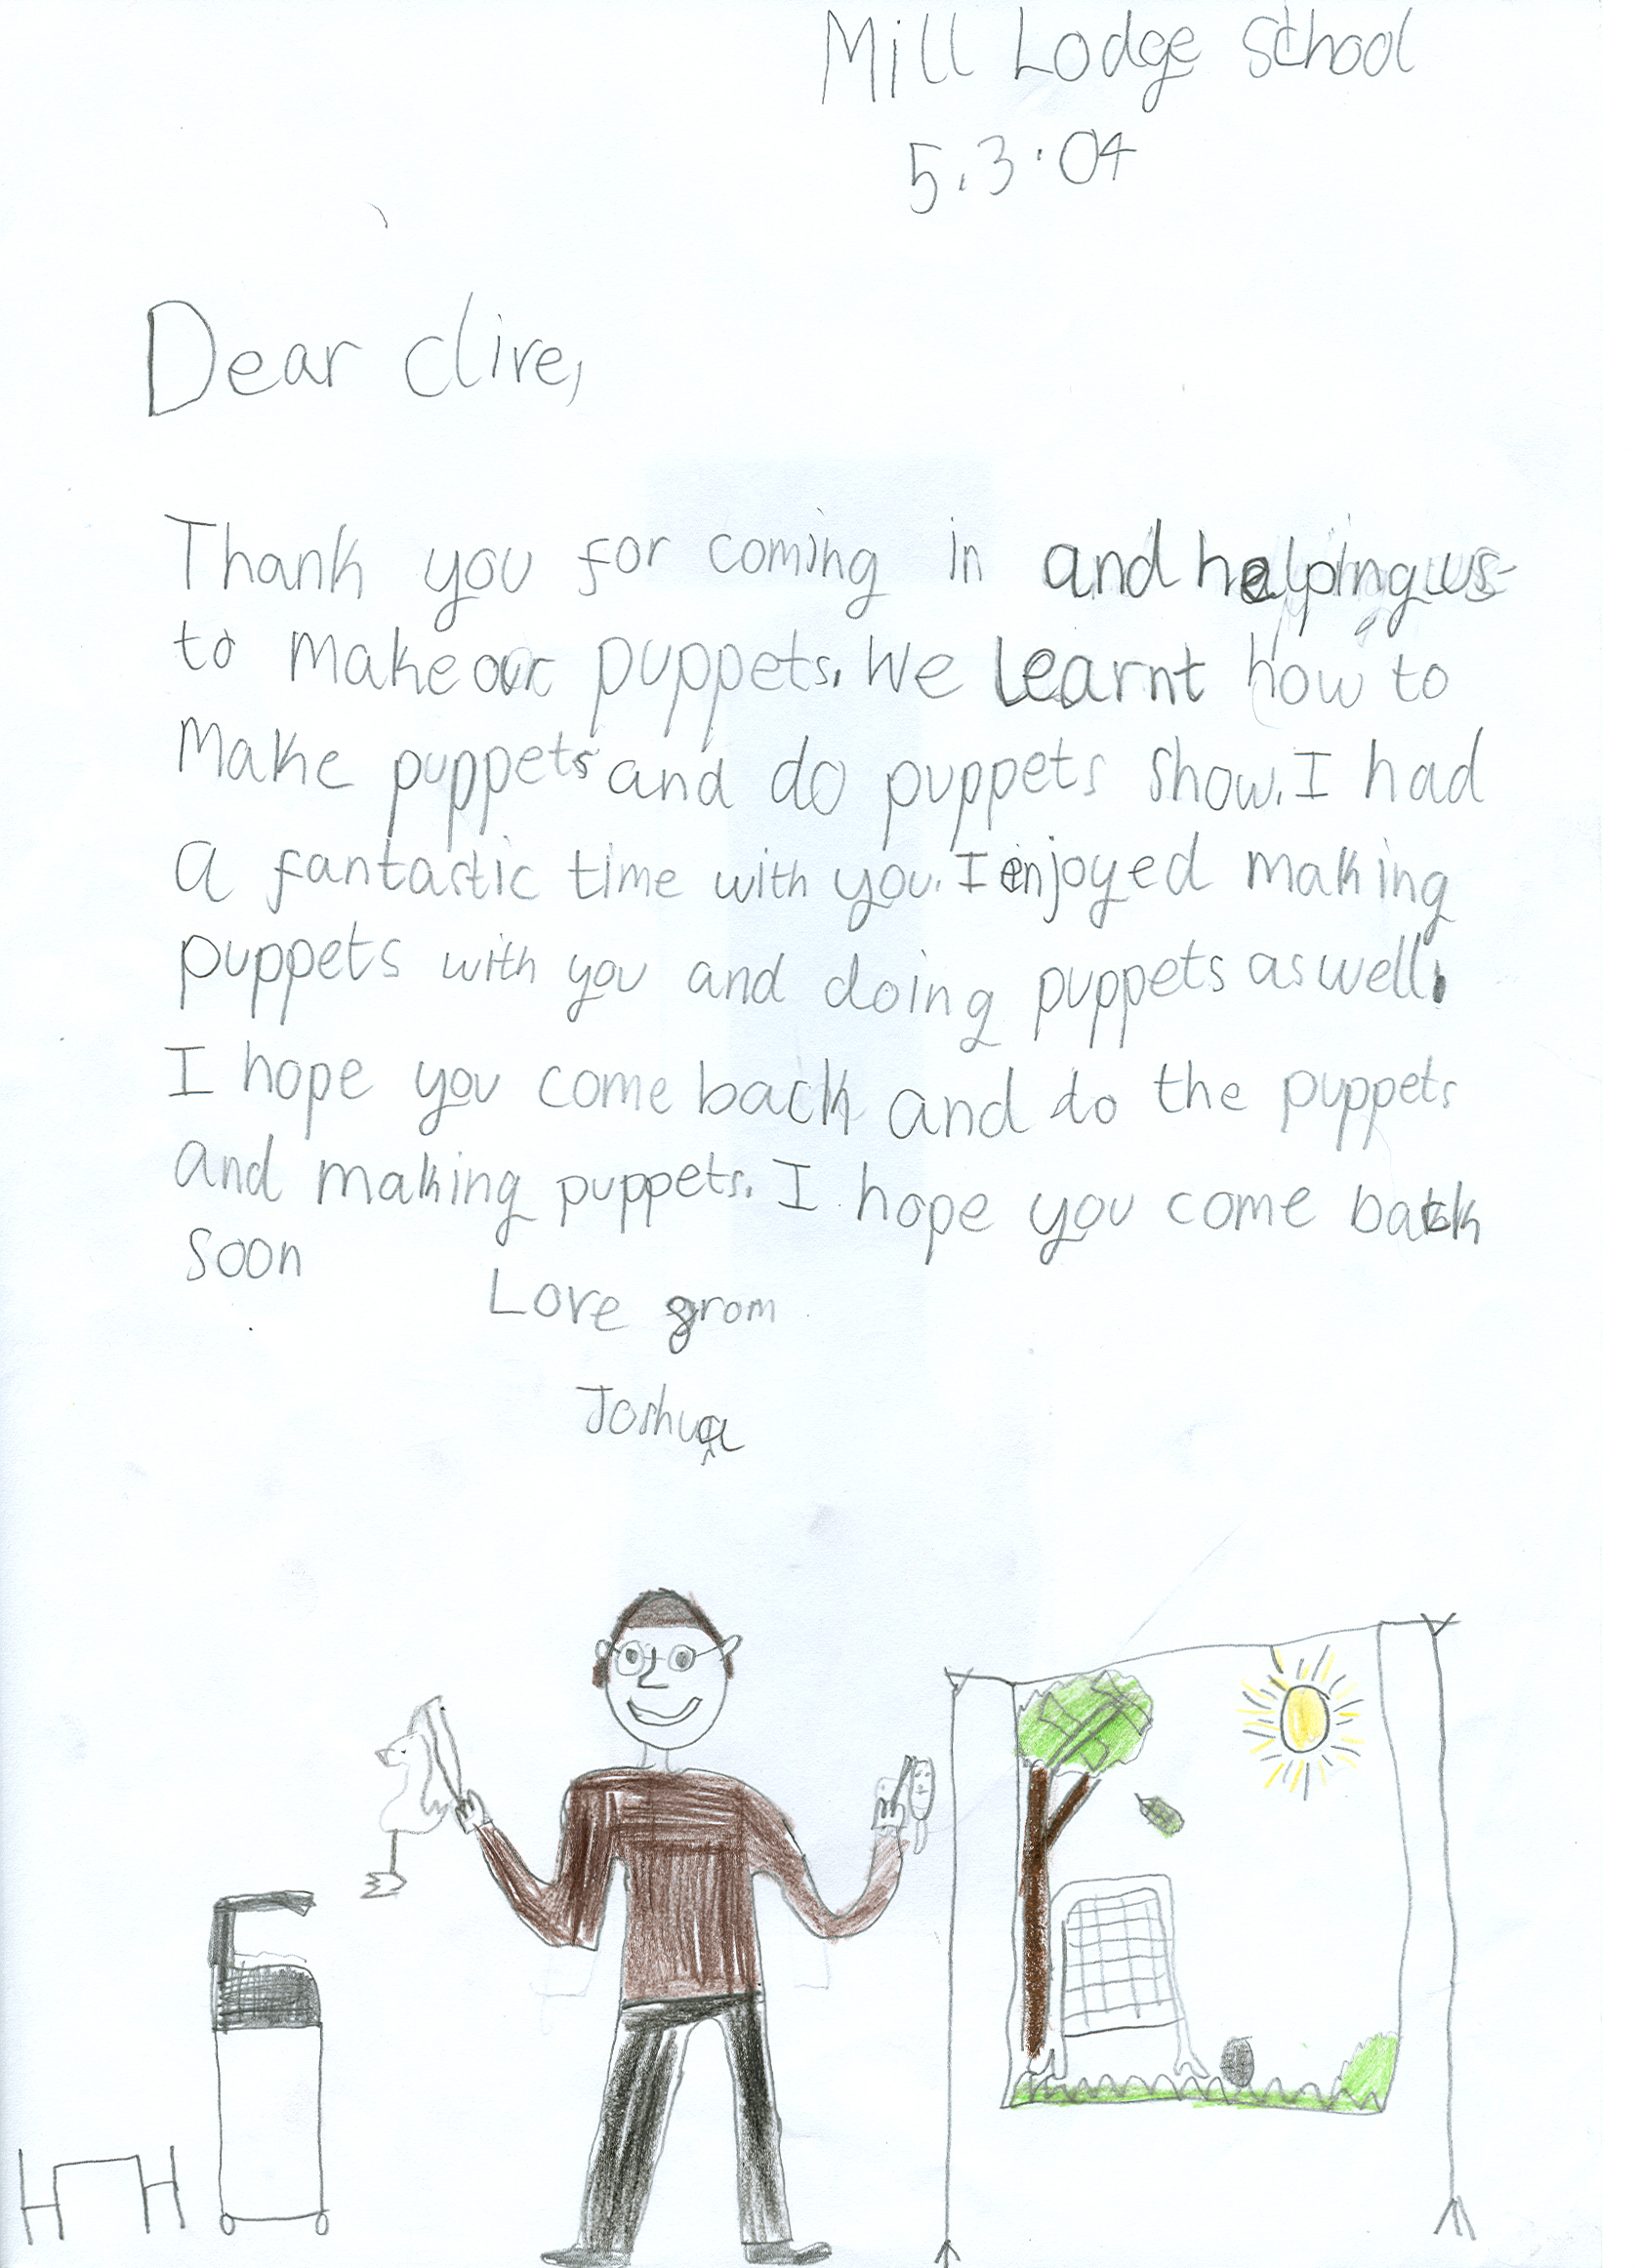 Mill Lodge School
5.3.04
Dear clive,
Thank you for coming in and helping us
to make our puppets. We learnt how to
make puppets and do puppets show. I had
a fantastic time with you. I enjoyed making
puppets with you and doing puppets as well.
I hope you come back and do the puppets
and making puppets. I hope you come back
soon
Love grom
Joshua